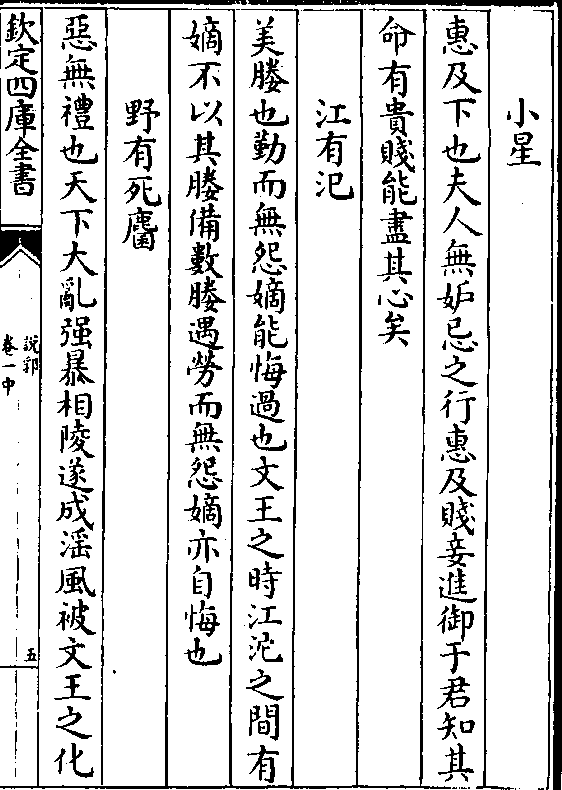 小星
惠及下也夫人無妒忌之行惠及賤妾進御于君知其
命有貴賤能盡其心矣
江有汜
美媵也勤而無怨嫡能悔過也文王之時江沱之間有
嫡不以其媵備數媵遇勞而無怨嫡亦自悔也
野有死麕
惡無禮也天下大亂强暴相陵遂成滛風被文王之化
欽定四庫全書
說郛
卷一中
五